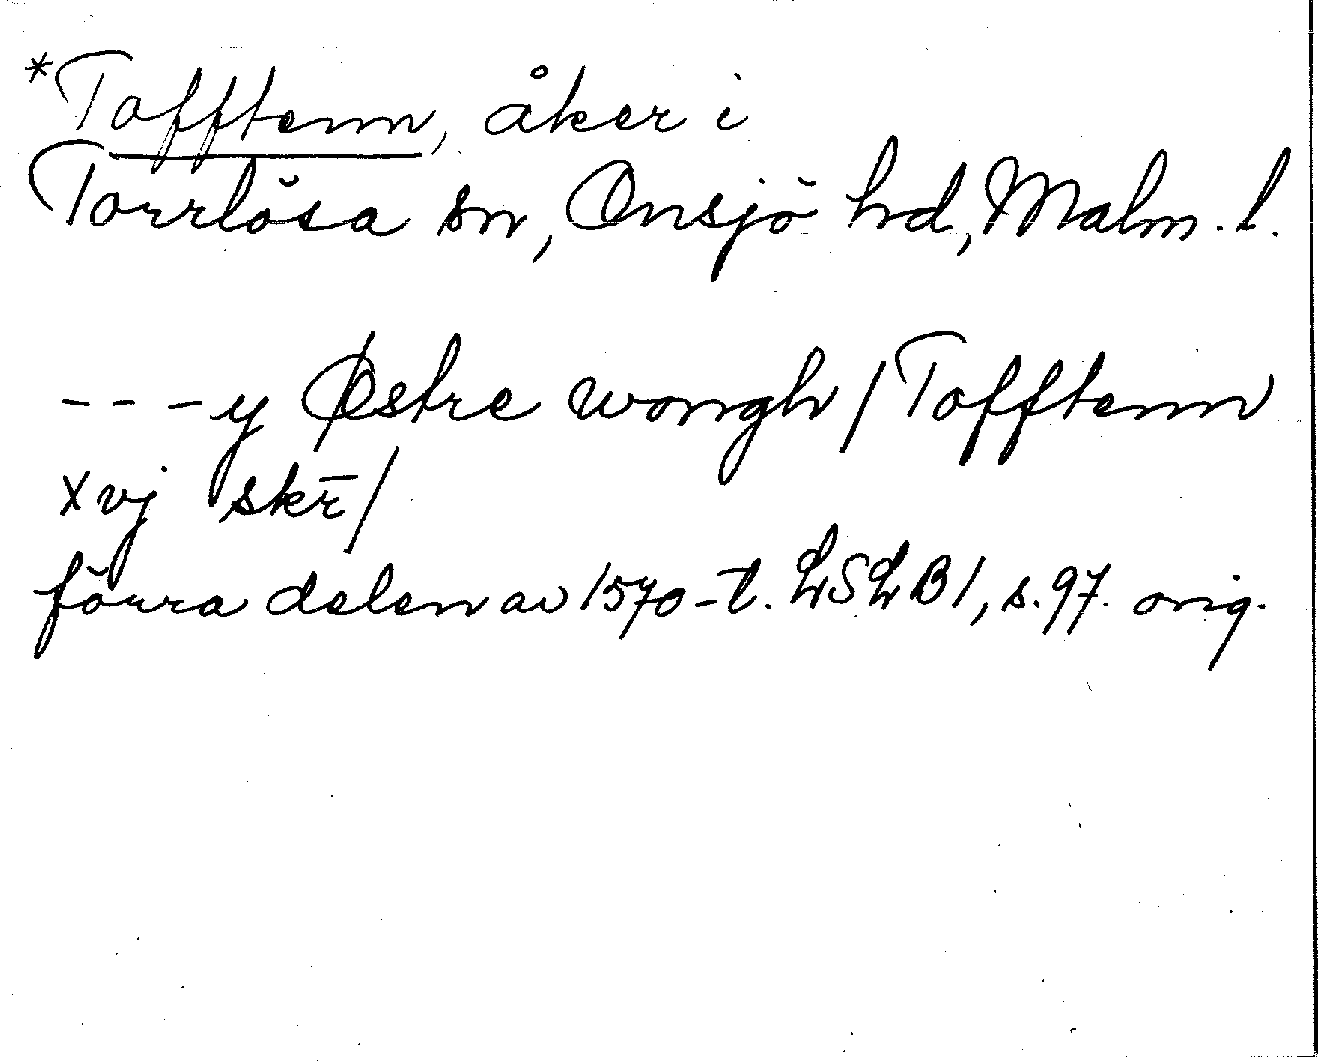 *Tofftenn, åker i
Torrlösa sn, Onsjö hd, Malm. l.
---y Østre wongh / Tofftenn
xvj skr̄ /
förra delen av 1570-t. LSLB1, s. 97. orig.